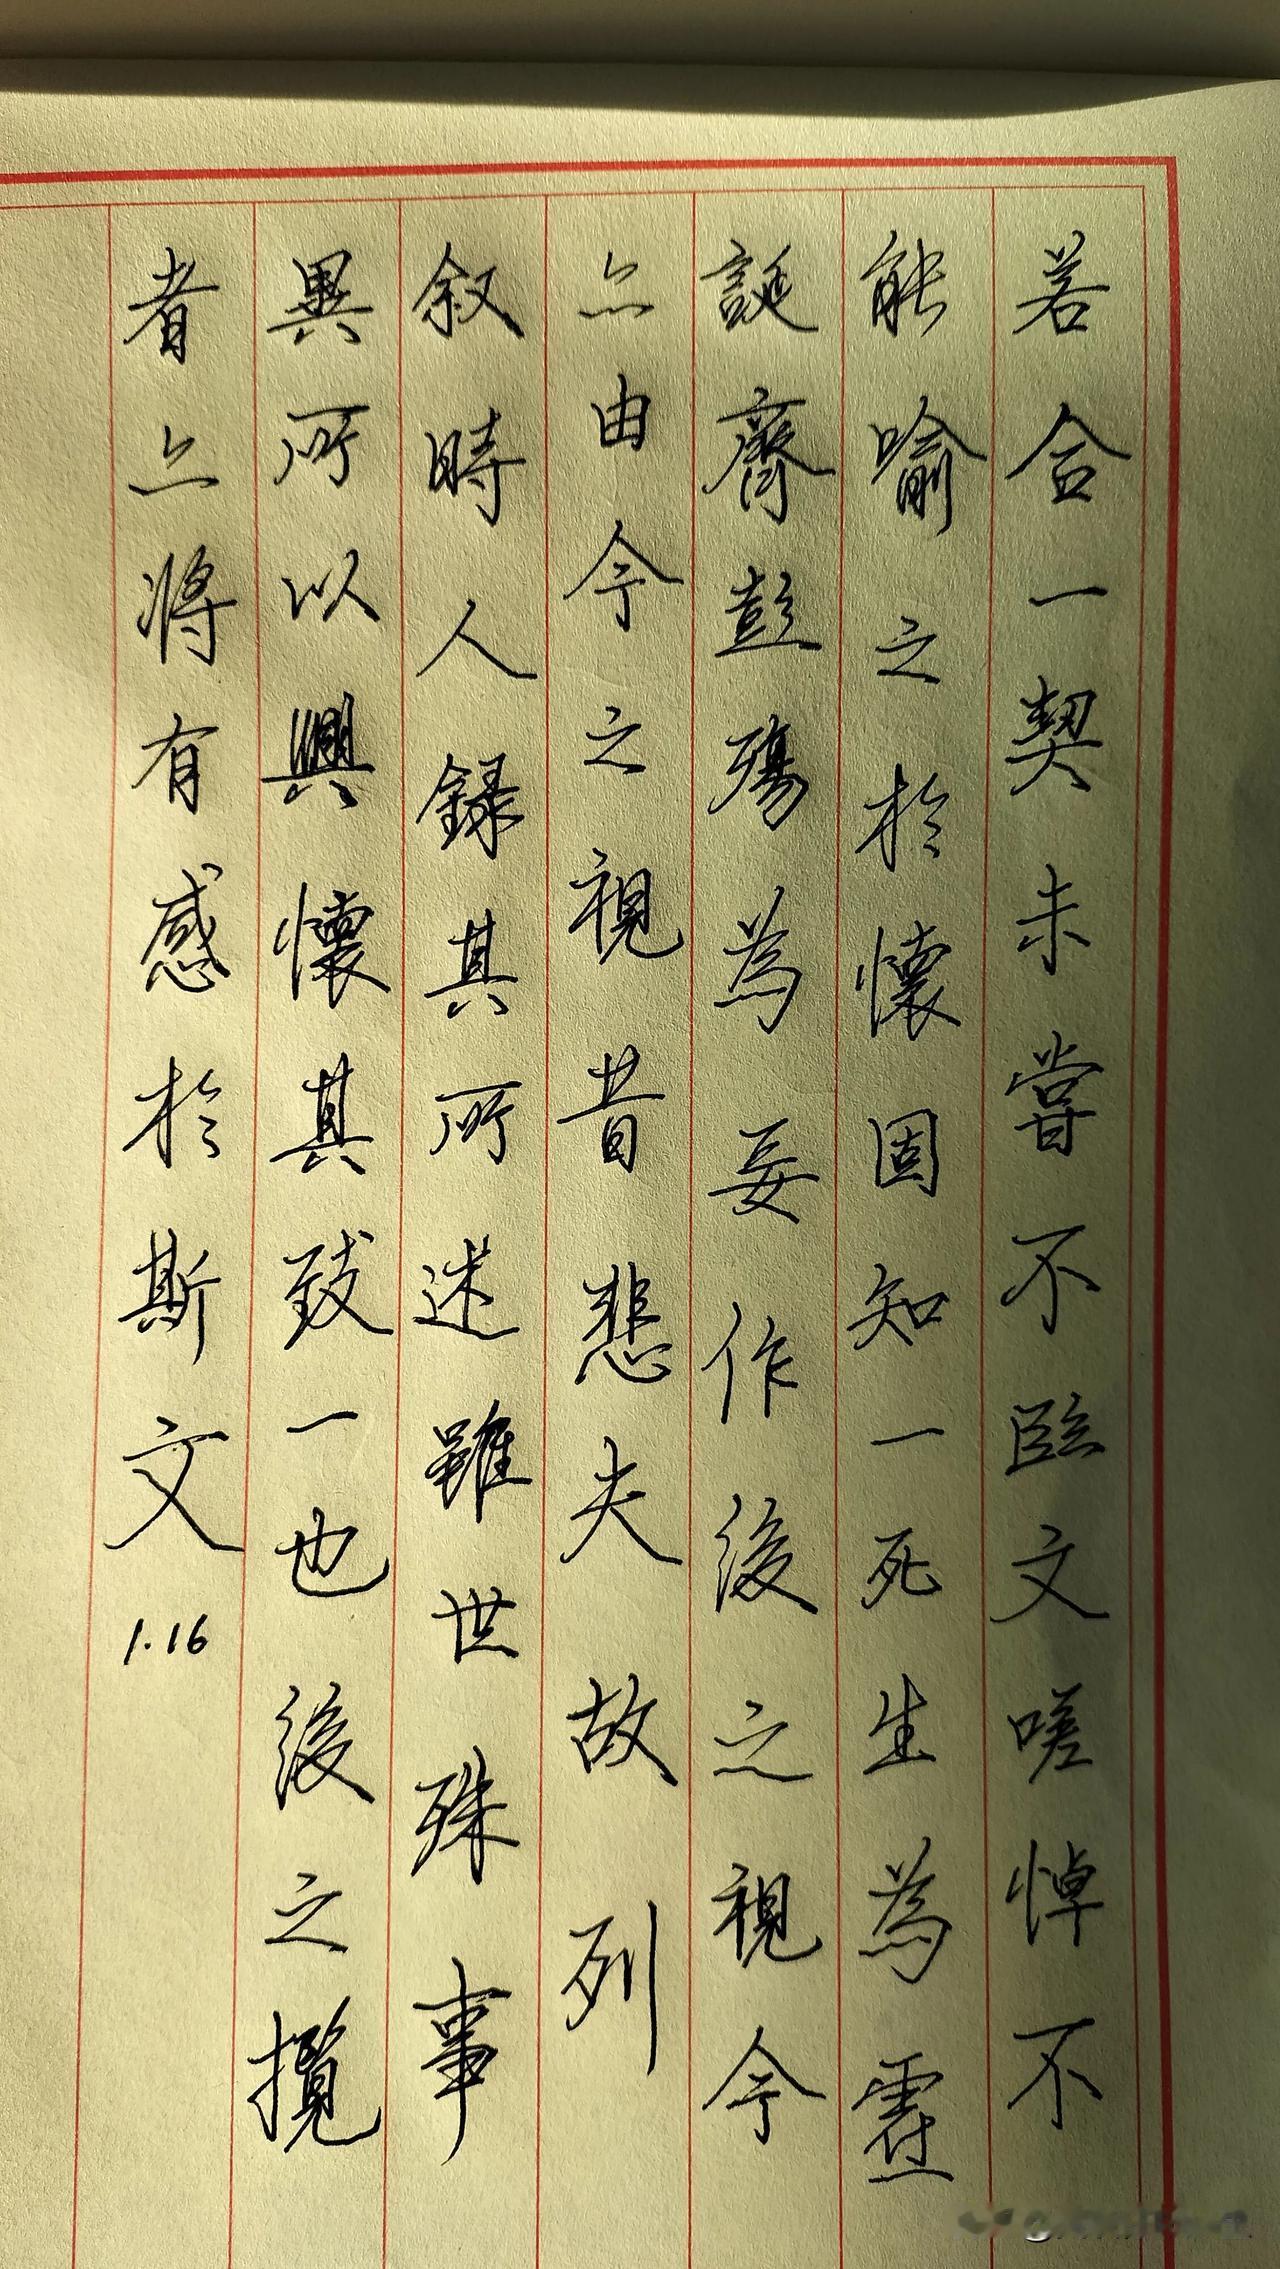 若合一契未嘗不臨文嗟悼不
能喻之於懷固知一死生為虛
誕齊彭殤為妄作後之視今
亦由今之視昔悲夫故列
叙時人錄其所述雖世殊事
異所以興懷其致一也後之攬
者亦將有感於斯文
1.16